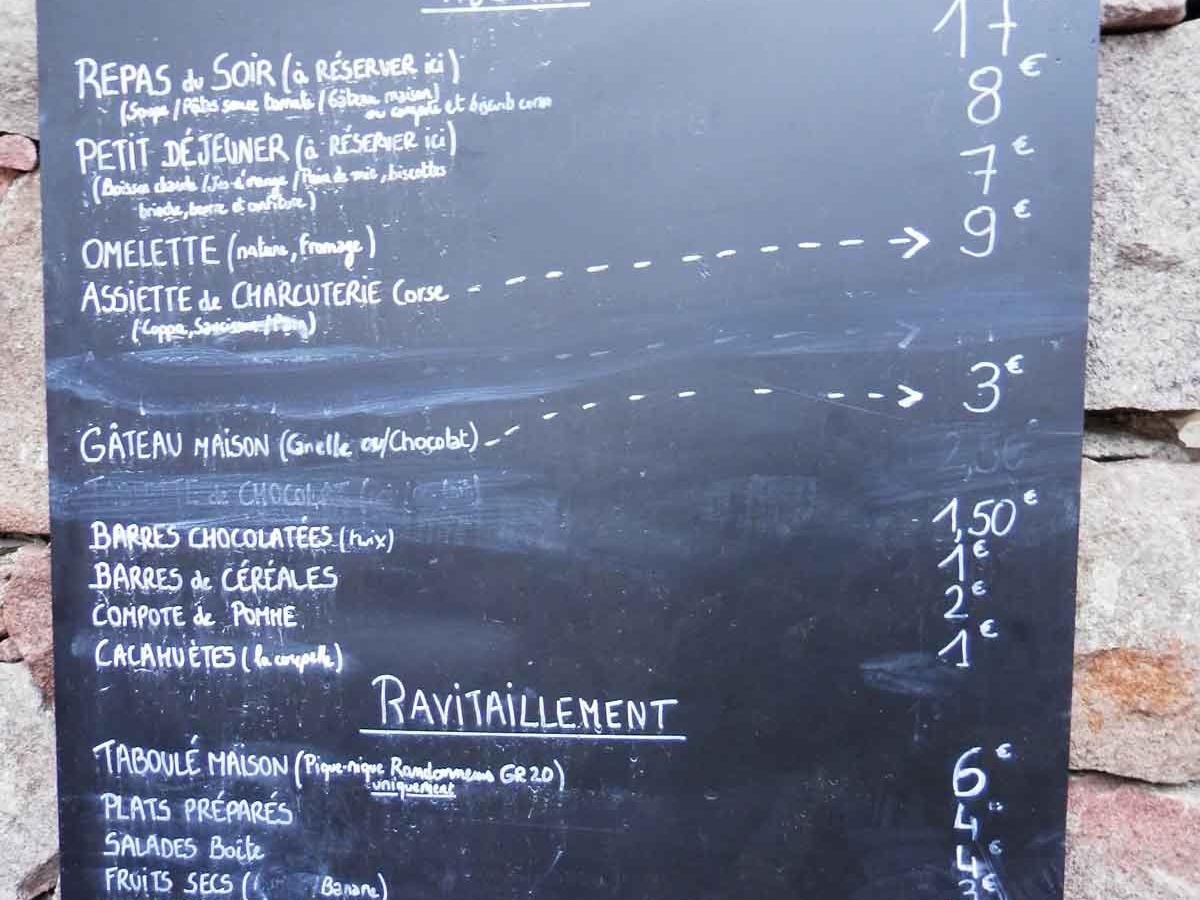 17
REPAS du SOIR (à RÉSERVER ici)
8€
(Soupe / Pâtes sauce tomate / Gâteau maison)
ou compote et biscuit corse
PETIT DÉJEUNER (à RÉSERVER ici)
7€
(Boisson chaude / Jus d'orange / Pain de mie, biscottes
brioche, beurre et confiture)
OMELETTE (nature, fromage)
9€
ASSIETTE de CHARCUTERIE Corse
(Coppa, Saucisson / Pain)
3€
GÂTEAU MAISON (Canelle ou/Chocolat)
2,50€
de CHOCOLAT
BARRES CHOCOLATÉES (twix) 1,50€
BARRES de CÉRÉALES 1€
COMPOTE de POMME 2€
CACAHUÈTES (la coupelle) 1€
RAVITAILLEMENT
TABOULÉ MAISON (Pique-nique Randonneurs GR20) 6€
uniquement
PLATS PRÉPARÉS 4
SALADES Boîte 4€
FRUITS SECS ( Banane) 3€